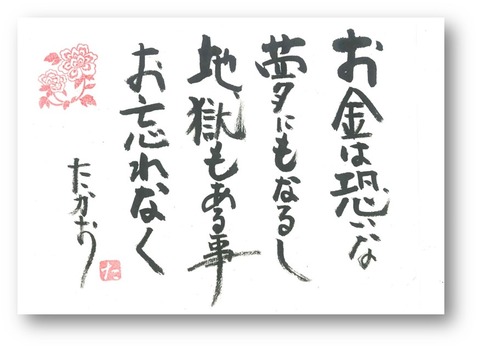 お金は恐いな
夢にもなるし
地獄もある事
お忘れなく
たかおり
た